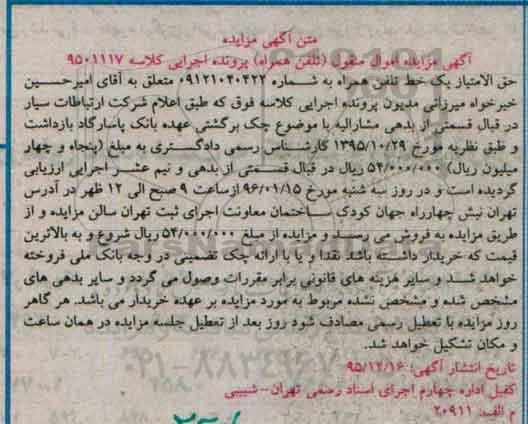 متن آگهی مزایده
آگهی مزایده اموال منقول (تلفن همراه) پرونده اجرایی کلاسه ۹۵۰۱۱۱۷
حق الامتیاز یک خط تلفن همراه به شماره ۰۹۱۲۱۰۴۰۴۲۲ متعلق به آقای امیرحسین
خیرخواه میرزائی مدیون پرونده اجرایی کلاسه فوق که طبق اعلام شرکت ارتباطات سیار
در قبال قسمتی از بدهی مشارالیه با موضوع چک برگشتی عهده بانک پاسارگاد بازداشت
و طبق نظریه مورخ ۱۳۹۵/۱۰/۲۹ کارشناس رسمی دادگستری به مبلغ (پنجاه و چهار
میلیون ریال) ۵۴/۰۰۰/۰۰۰ ریال در قبال قسمتی از بدهی و نیم عشر اجرایی ارزیابی
گردیده است و در روز سه شنبه مورخ ۹۶/۰۱/۱۵ ازساعت ۹ صبح الی ۱۲ ظهر در آدرس
تهران نبش چهارراه جهان کودک ساختمان معاونت اجرای ثبت تهران سالن مزایده و از
طریق مزایده به فروش می رسد و مزایده از مبلغ ۵۴/۰۰۰/۰۰۰ریال شروع و به بالاترین
قیمت که خریدار داشته باشد نقدا و یا با ارائه چک تضمینی در وجه بانک ملی فروخته
خواهد شد و سایر هزینه های قانونی برابر مقررات وصول می گردد و سایر بدهی های
مشخص شده و مشخص نشده مربوط به مورد مزایده بر عهده خریدار می باشد. هر گاهر
روز مزایده با تعطیل رسمی مصادف شود روز بعد از تعطیل جلسه مزایده در همان ساعت
و مکان تشکیل خواهد شد.
تاریخ انتشار آگهی: ۹۵/۱۲/۱۶
کفیل اداره چهارم اجرای اسناد رسمی تهران- شبیبی
م الف: ۲۰۹۱۱